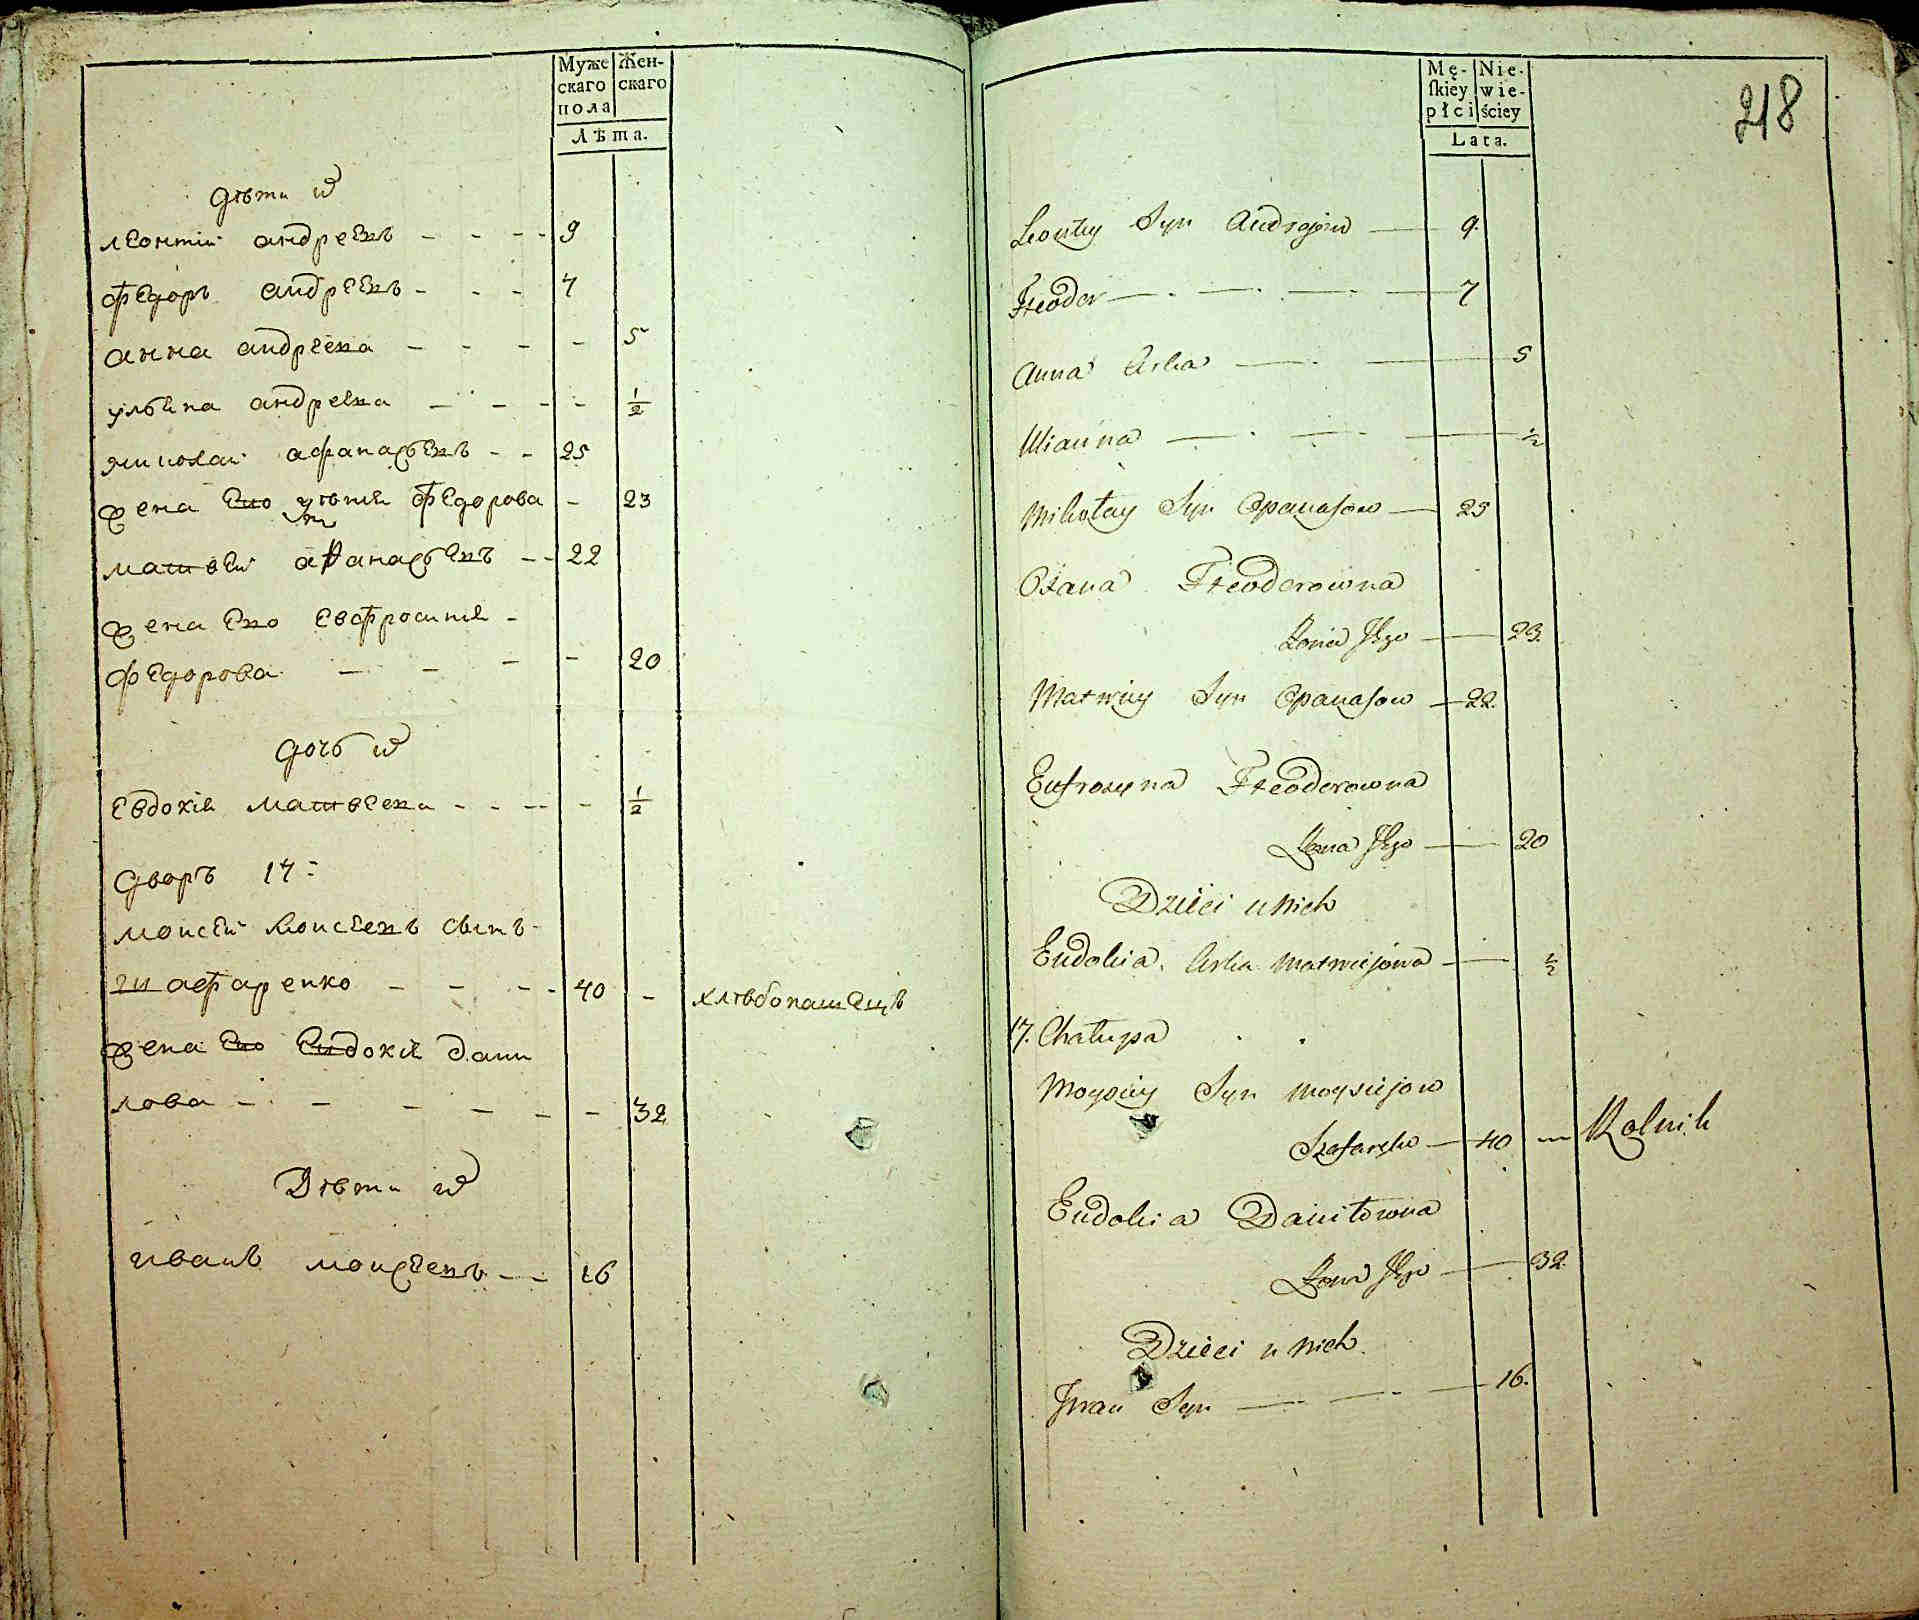 Муже
скаго
пола
Жен-
скаго
Лѣта.
дѣти ѡ
леонтіи андреевъ - - - - 9
федоръ андреевъ - - - 7
анна андреева - - - - 5
ульяна андреева - - - - ½
николаи афанасьевъ - - 25
жена ево федорова - 23
матвеи афанасьевъ - - 22
жена ево евфросинія -
федорова - - - - 20
дочь ѡ
евдокія матвеева - - - - ½
дворъ 17:
моисеи моисеевъ сынъ-
шафаренко - - - - 40 - хлѣбопашецъ
жена ево евдокія дани
лова - - - - - - 32
Дѣти ѡ
иванъ моисеевъ - - 16
Mę-
skiey
płci
Nie-
wie-
ściey
Lata.
218
Leonty Syn Andrejow — 9.
Fteodor — . — . — . — 7
Anna Crka — . — 5
Ulianna — . — . — ½
Mikołay Syn Opanasow — 25
Oxana Fteodorowna
Żona Jego — 23.
Matwiiy Syn Opanasow — 22.
Eufrozyna Fteodorowna
Żona Jego — 20
Dzieci u Nich
Eudokia Crka Matwiejowa — ½
17. Chałupa
Moysiiy Syn Moysiejow
Szafaręko — 40 — Rolnik
Eudokia Daniłowna
Żona Jego — 32.
Dzieci u Nich
Jwan Syn — . — . — 16.